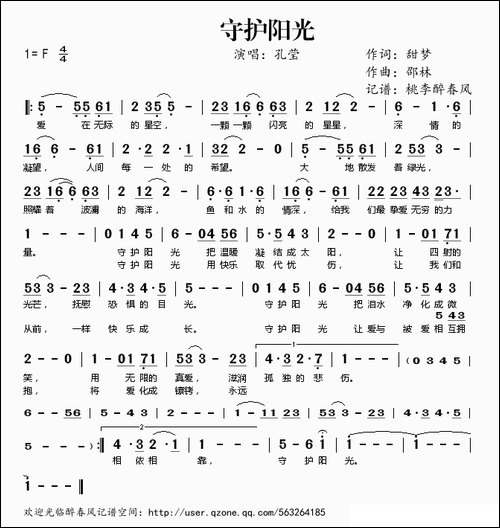 守护阳光
1= F 4/4 演唱：孔莹 作词：甜梦
作曲：邵林
记谱：桃李醉春风
5 - 55 61 | 2 35 5 - | 23 16 6 63 | 2 12 2 - | 6 - 1· 6 |
爱 在无际 的 星空， 一颗 一颗 闪亮 的 星星， 深 情的
16 6 - - | 2 - 1 2 | 32 2 - 0 | 5 - 55 61 | 2 35 5 - |
凝望， 人间 每 一 处的 希望。 大 地 散发 着 绿光，
23 16 6 63 | 2 12 2 - | 6·6 6 1 | 16 6 - 6·1 | 22 23 43 23· |
照耀着 波澜 的 海洋， 鱼 和 水 的 情深， 给我 们最 挚爱 无穷 的力
1 - - 0 | 0 1 4 5 | 6 - 04 56 | 5·5 4 3 | 2 - - 0 | 1 - 01 71 |
量。 守 护 阳 光 把 温暖 凝 结 成 太 阳， 让 四 射的
守 护 阳 光 用 快乐 取 代 忧 伤， 让 我 们和
53 3 - 23 | 4·3 2 1 | 5 - - 0 | 0 1 4 5 | 6 - 04 56 | 5·5 4 3 |
光芒， 抚慰 恐 惧 的 目 光。 守 护 阳 光 把 泪水 净 化 成 微
从前， 一样 快 乐 成 长。 守 护 阳 光 让 爱与 被 爱 相互拥
5 43
2 - - 0 | 1 - 01 71 | 53 3 - 23 | 4·3 2·7 | 1 - - - | (0 3 4 5 |
笑， 用 无 限的 真爱， 滋润 孤 独 的 悲 伤。
抱， 将 爱 化成 永远
6 - - 56 | 5 - 4 3 | 2 - - - | 1 - 11 23 | 53 3 - 23 | 4·3 4·5 |
5 - - -) :| 4·3 2·1 | 1 - - - | 0 1 4 5 | 6 - - - | 1 - - - | 1 - - - |
相 依 相 靠， 守 护 阳 光。
1 - - - ||
欢迎光临醉春风记谱空间：http://user.qzone.qq.com/563264185